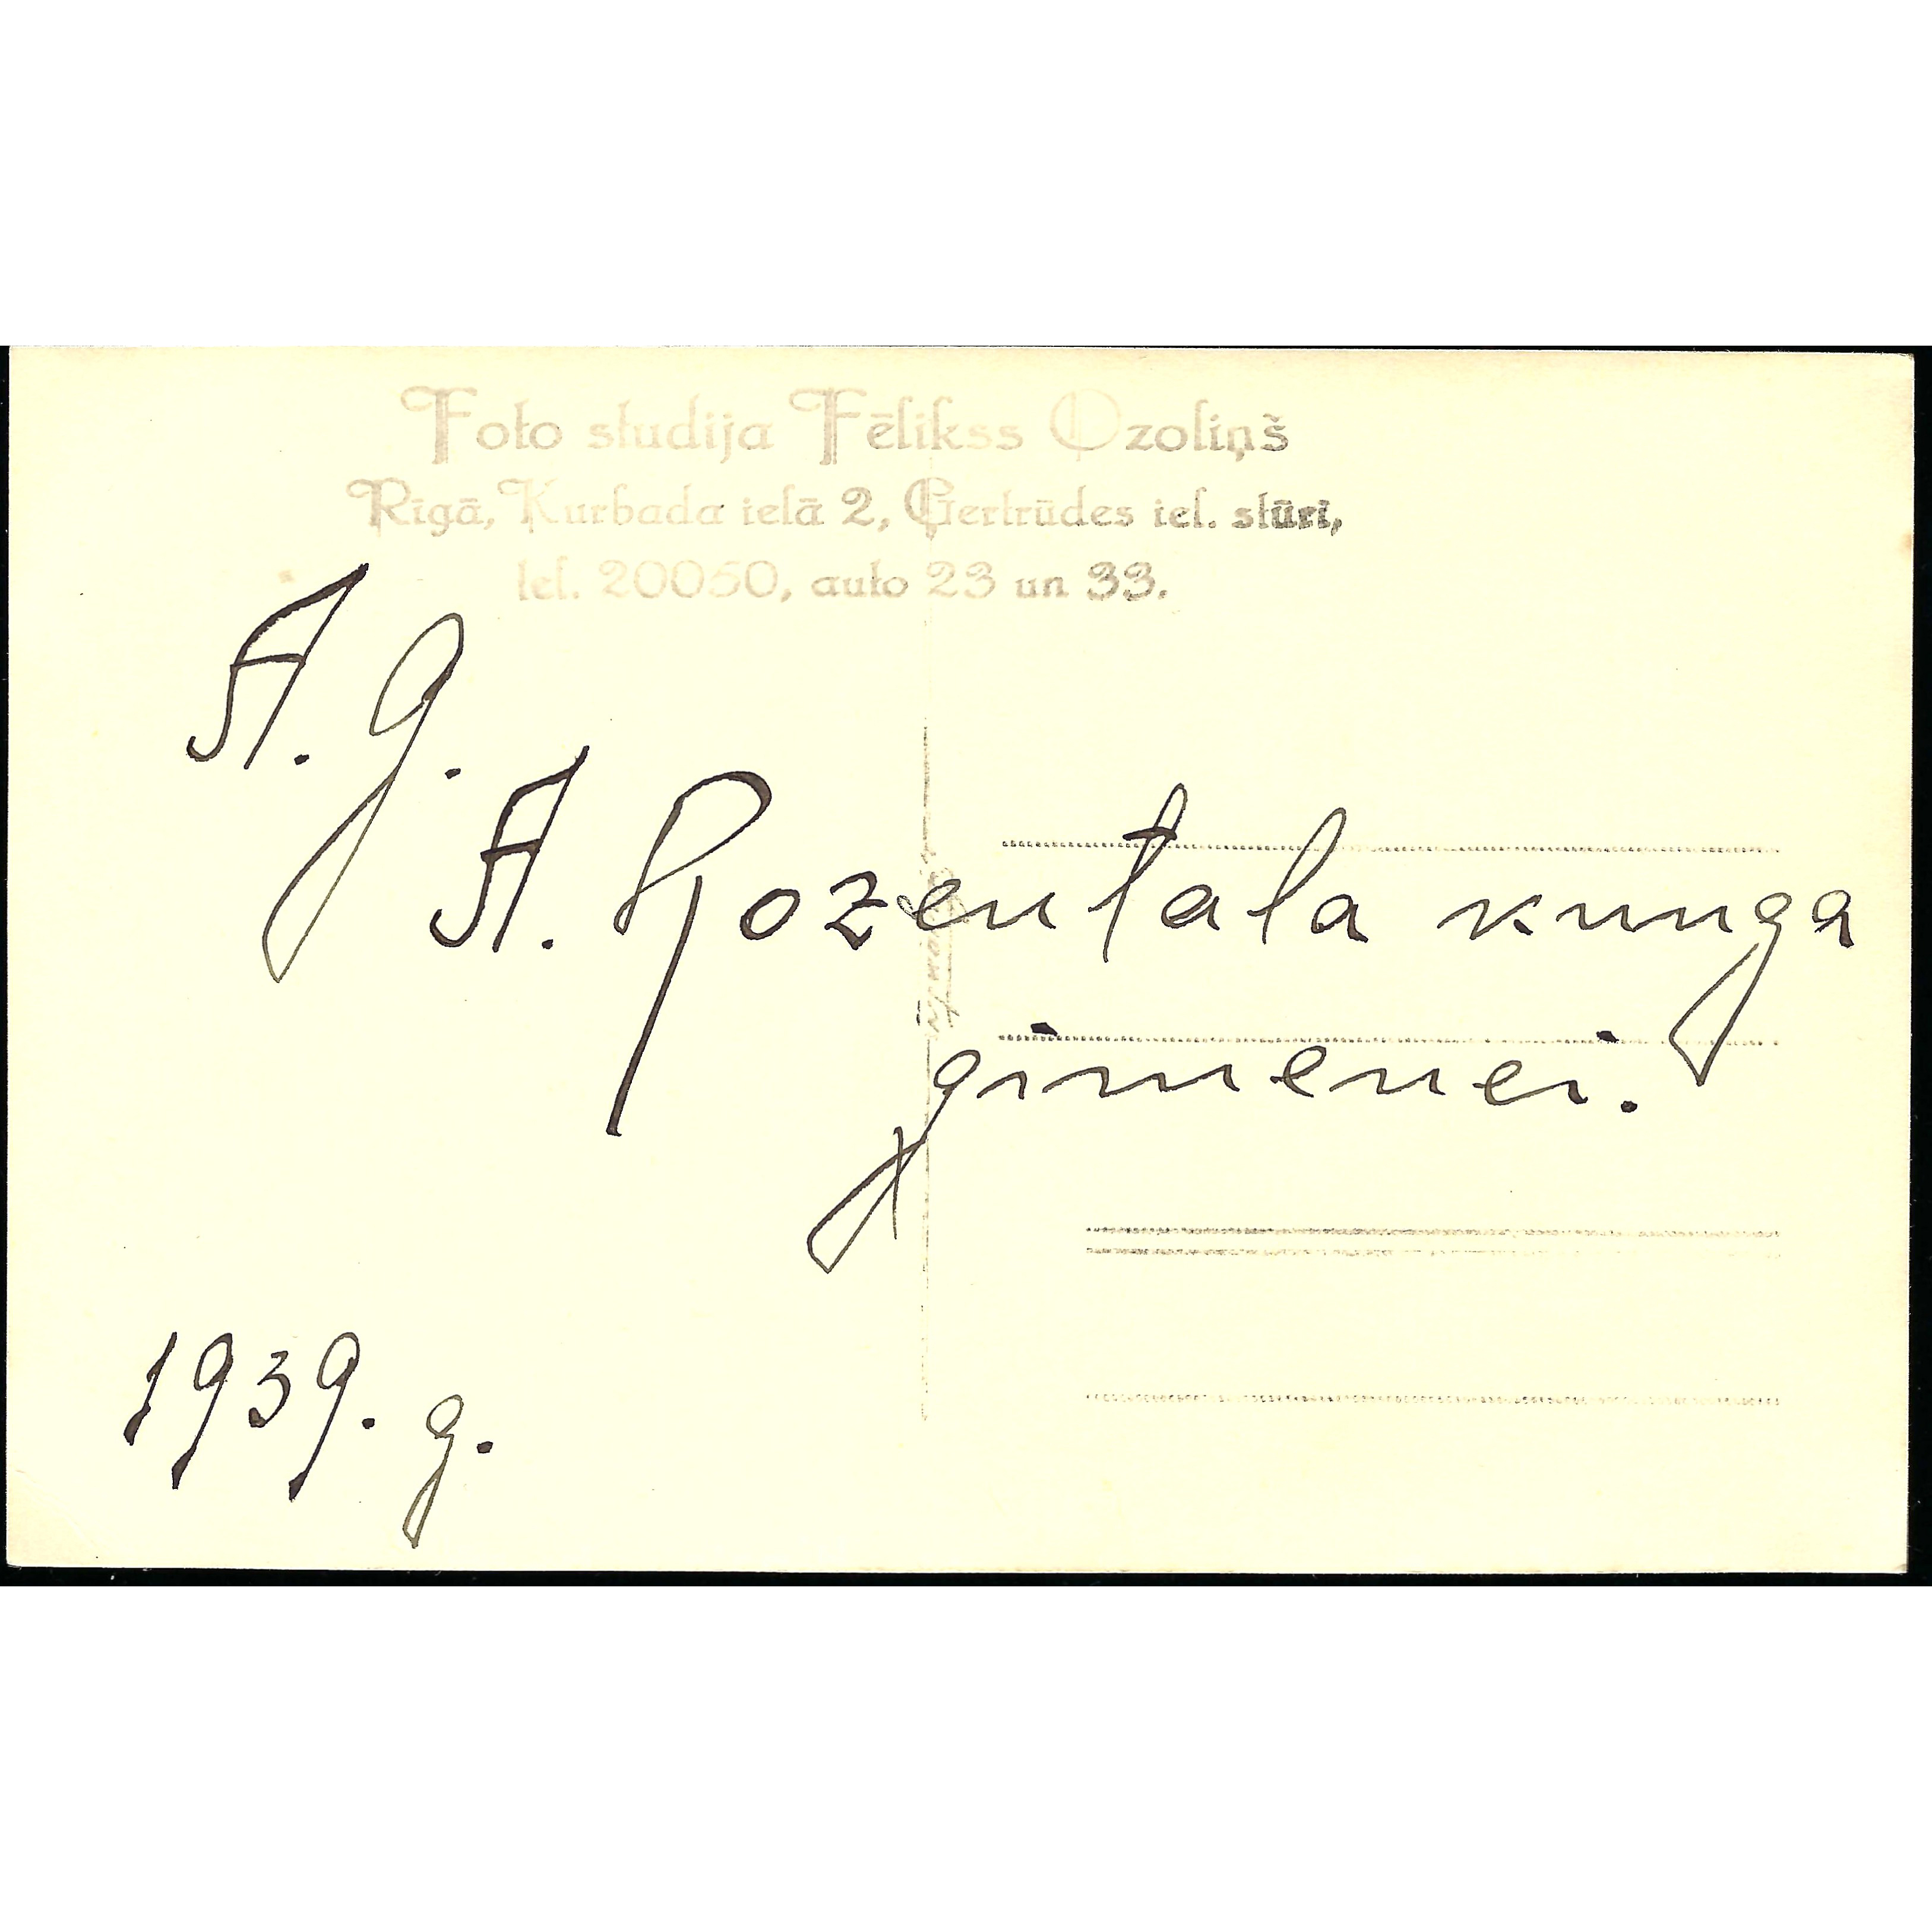 Foto studija Fēlikss Ozoliņš
Rīgā, Kurbada ielā 2, Ģertrūdes iel. stūrī,
tel. 20050, auto 23 un 33.
A. G.
A. Rozentala kunga
ģimenei.
1939. g.